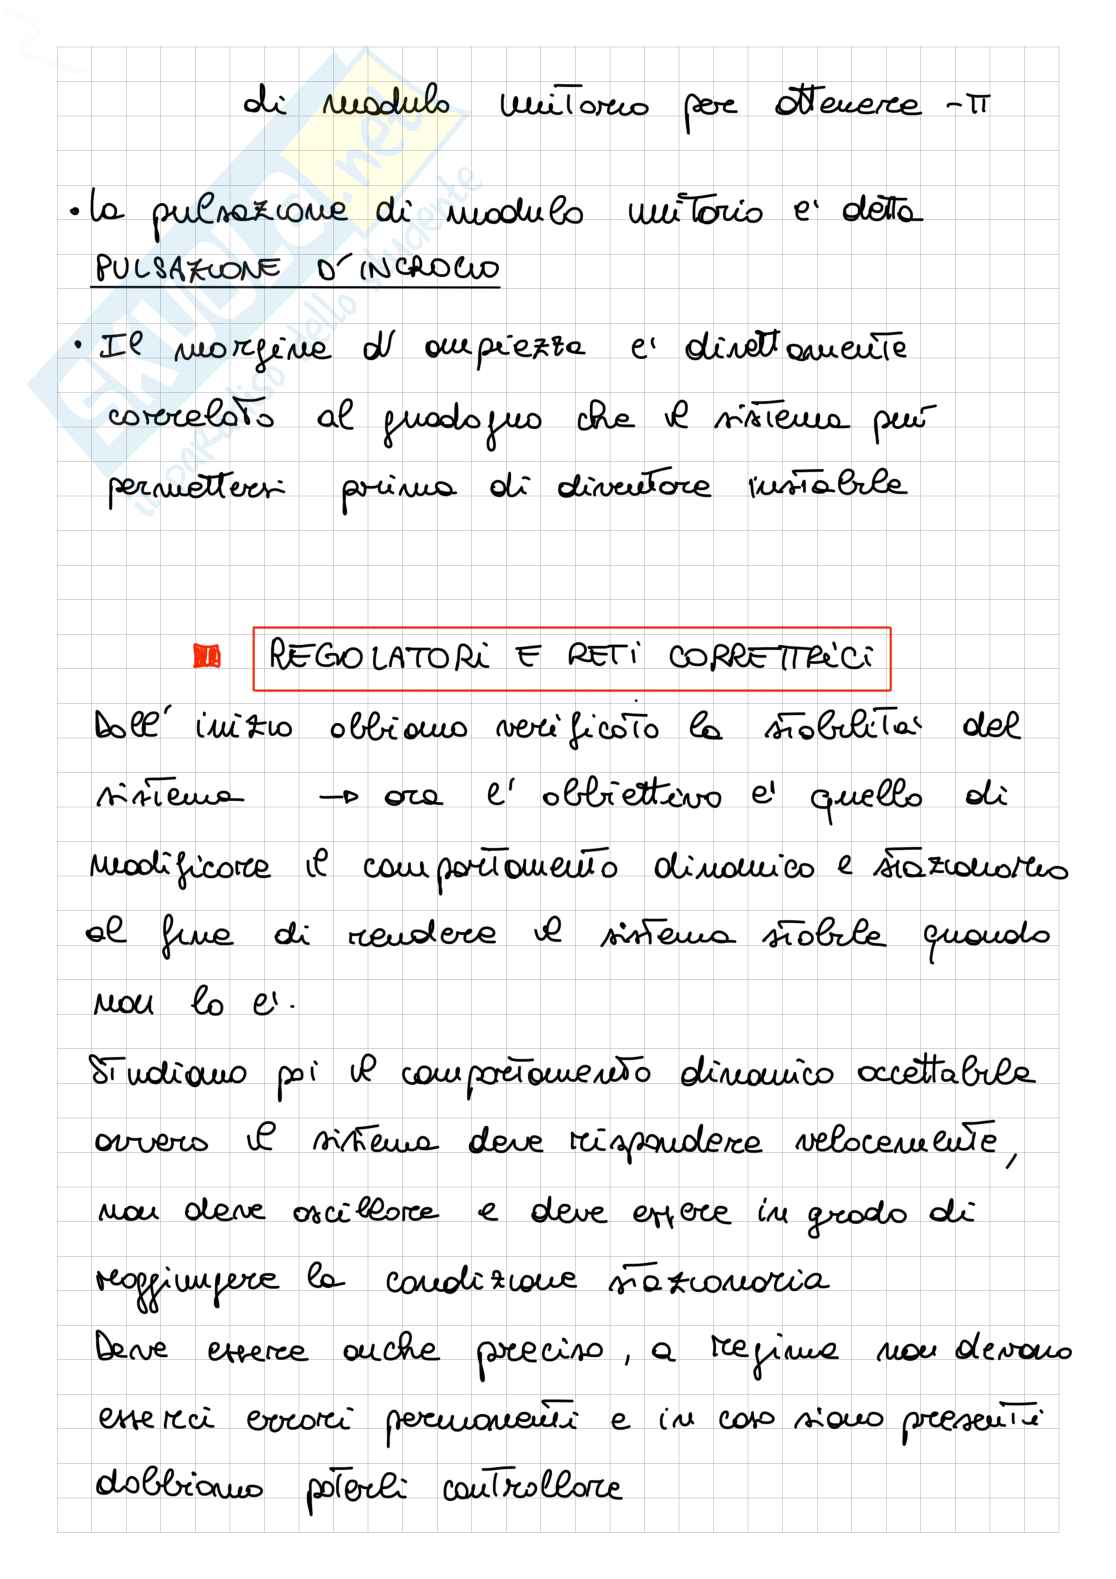 di modulo unitario per ottenere -π
• la pulsazione di modulo unitario e' detta
PULSAZIONE D'INCROCIO
• Il margine d' ampiezza e' direttamente
correlato al guadagno che il sistema può
permettersi prima di diventare instabile
REGOLATORI E RETI CORRETTRICI
Dall' inizio abbiamo verificato la stabilita' del
sistema → ora l' obbiettivo e' quello di
modificare il comportamento dinamico e stazionario
al fine di rendere il sistema stabile quando
non lo e'.
Studiamo poi il comportamento dinamico accettabile
ovvero il sistema deve rispondere velocemente,
non deve oscillare e deve essere in grado di
raggiungere la condizione stazionaria
Deve essere anche preciso, a regime non devono
esserci errori permanenti e in caso siano presenti
dobbiamo poterli controllare
SKUOLA.net
il paradiso dello studente